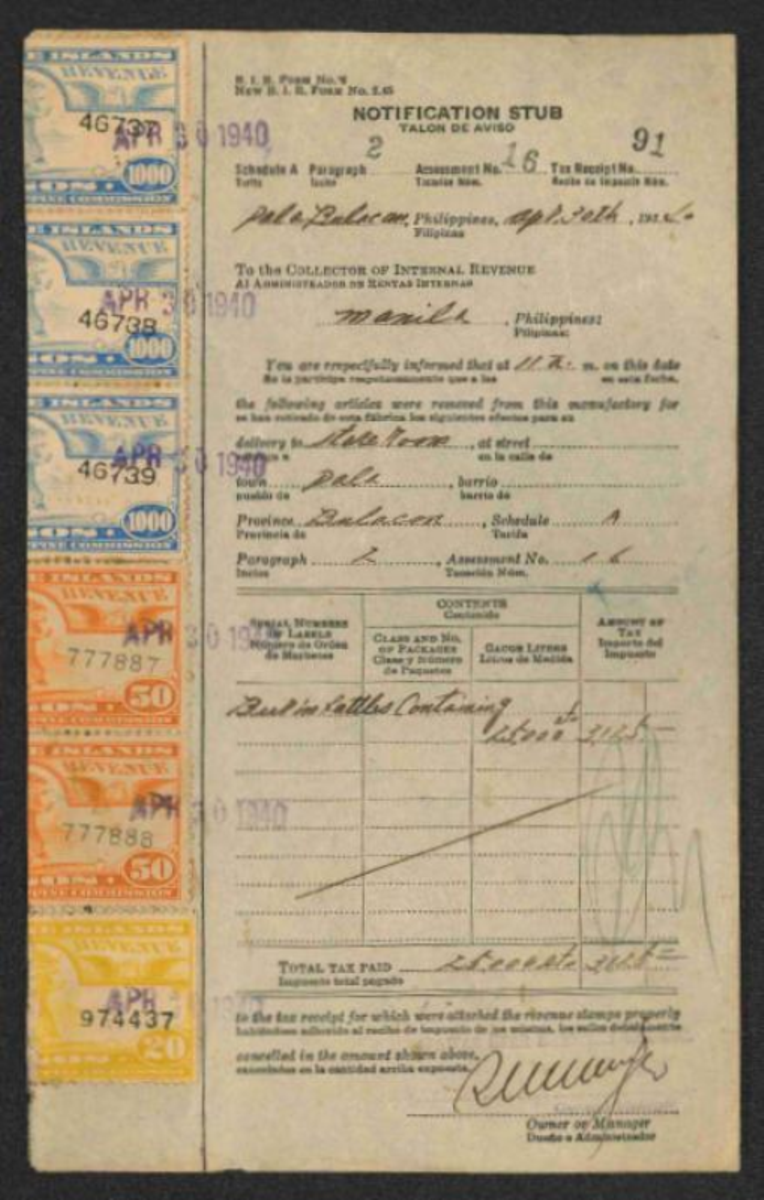 E ISLANDS
REVENUE
46737
APR 30 1940
1000
ISLANDS
REVENUE
APR 30 1940
46738
1000
E ISLANDS
REVENUE
APR 30 1940
46739
1000
E ISLANDS
REVENUE
APR 30 1940
777887
50
E ISLANDS
REVENUE
APR 30 1940
777888
50
E ISLANDS
REVENUE
APR 1940
974437
20
B. I. R. FORM No.
NEW B. I. R. FORM No. 2.45
NOTIFICATION STUB
TALON DE AVISO
Schedule A Paragraph 2 Assessment No. 16 Tax Receipt No. 91
Tarifa Inciso Tasación Núm. Recibo de Impuesto Núm.
Bulacan, Philippines, Apr. 30th, 19
Filipinas
To the COLLECTOR OF INTERNAL REVENUE
Al ADMINISTRADOR DE RENTAS INTERNAS
Manila, Philippines:
Filipinas:
You are respectfully informed that at 11 a. m. on this date
Se le participa respetuosamente que a las en esta fecha,
the following articles were removed from this manufactory for
se han retirado de esta fábrica los siguientes efectos para su
delivery to Store Room, at street
entrega a en la calle de
town, barrio
pueblo de barrio de
Province Bulacan, Schedule A
Provincia de Tarifa
Paragraph 2, Assessment No. 16
Inciso Tasación Núm.
SERIAL NUMBERS OF LABELS
Número de Orden de Marbetes
CONTENTS
Contenido
CLASS AND No. OF PACKAGES
Clase y Número de Paquetes
GAUGE LITERS
Litros de Medida
AMOUNT OF TAX
Importe del Impuesto
in bottles Containing
25000
TOTAL TAX PAID
Impuesto total pagado
to the tax receipt for which were attached the revenue stamps properly
habiéndose adherido al recibo de impuesto de los mismos, los sellos debidamente
cancelled in the amount shown above.
cancelados en la cantidad arriba expuesta.
Owner or Manager
Dueño o Administrador